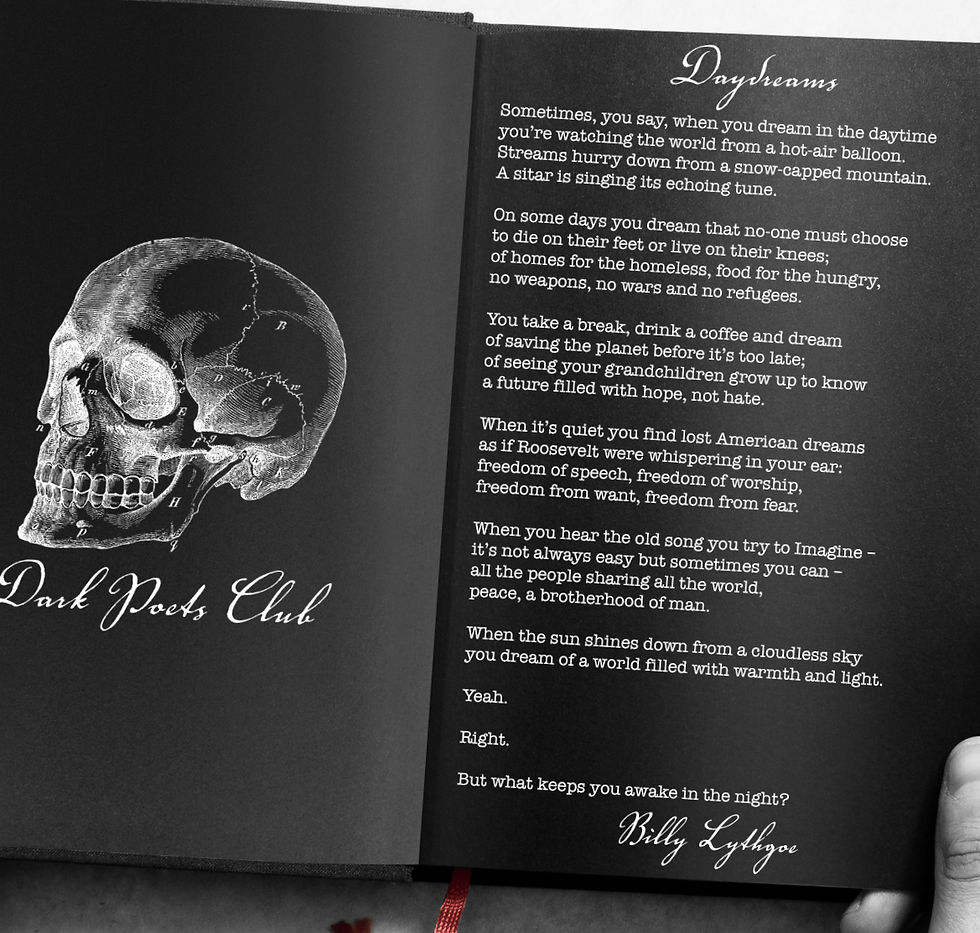 Dark Poets Club
Daydreams
Sometimes, you say, when you dream in the daytime
you're watching the world from a hot-air balloon.
Streams hurry down from a snow-capped mountain.
A sitar is singing its echoing tune.
On some days you dream that no-one must choose
to die on their feet or live on their knees;
of homes for the homeless, food for the hungry,
no weapons, no wars and no refugees.
You take a break, drink a coffee and dream
of saving the planet before it's too late;
of seeing your grandchildren grow up to know
a future filled with hope, not hate.
When it's quiet you find lost American dreams
as if Roosevelt were whispering in your ear:
freedom of speech, freedom of worship,
freedom from want, freedom from fear.
When you hear the old song you try to Imagine –
it's not always easy but sometimes you can –
all the people sharing all the world,
peace, a brotherhood of man.
When the sun shines down from a cloudless sky
you dream of a world filled with warmth and light.
Yeah.
Right.
But what keeps you awake in the night?
Billy Lythgoe